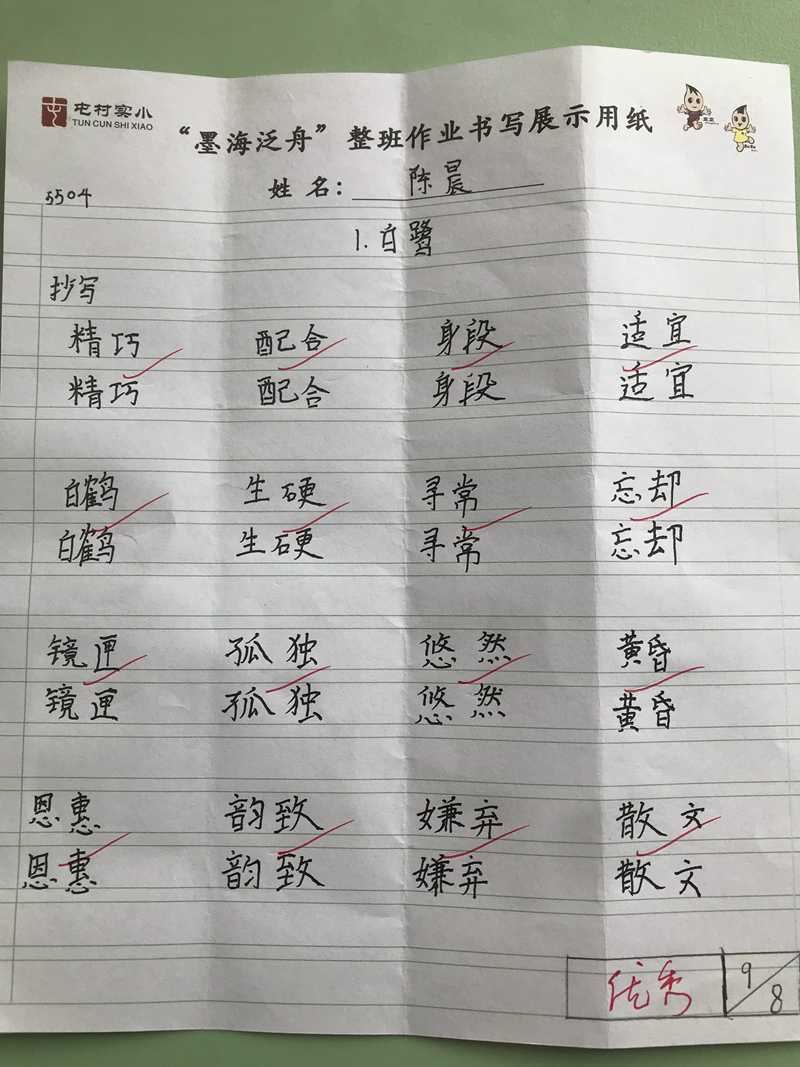 屯村实小
TUN CUN SHI XIAO
“墨海泛舟”整班作业书写展示用纸
姓名：陈晨
5504
1.白鹭
抄写
精巧 配合 身段 适宜
精巧 配合 身段 适宜
白鹤 生硬 寻常 忘却
白鹤 生硬 寻常 忘却
镜匣 孤独 悠然 黄昏
镜匣 孤独 悠然 黄昏
恩惠 韵致 嫌弃 散文
恩惠 韵致 嫌弃 散文
优秀 9/8